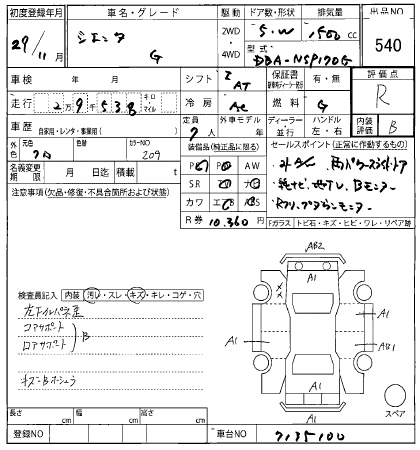 初度登録年月 車名・グレード 駆動 ドア数・形状 排気量 出品NO
29/11月 シエンタ G 2WD ・ 4WD 5.W 1500 cc 540
型式 DBA-NSP170G
車検 年 月 シフト IAT 保証書 有・無 評価点
走行 2万9千538 キロ・マイル 冷房 AC 燃料 G R
車歴 自家用・レンタ・事業用( ) 定員 7人 外車モデル 年 ディーラー・並行 ハンドル 左・右 内装評価 B
外色 元色 クロ 色替 カラーNO 209 装備品(純正品に限る) セールスポイント(正常に動作するもの)
名義変更期限 月 日迄 積載 t PS PW AW
注意事項(欠品・修復・不具合箇所および状態) SR ナビ
純ナビ 地TV、Bモニター
カワ エアB ABS
R券 10,360円 Fガラス トビ石・キズ・ヒビ・ワレ・リペア跡
AB2
A1
検査員記入 内装 汚レ・スレ・キズ・キレ・コゲ・穴
コアサポート B
A1 A1
AB1 B
A1
A1
スペア
長さ cm 幅 cm 高さ cm
登録NO 車台NO 7135100